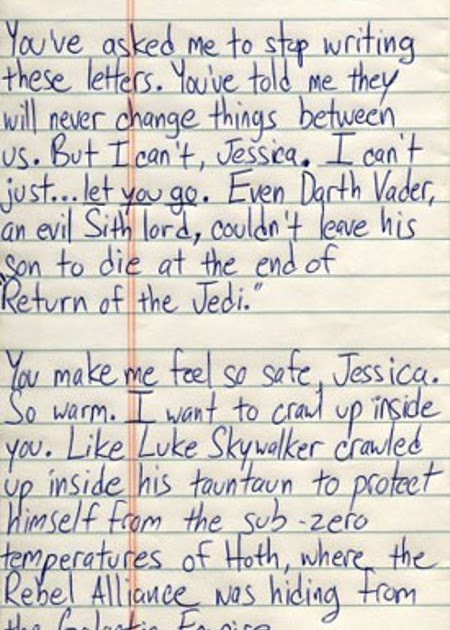 You've asked me to stop writing
these letters. You've told me they
will never change things between
us. But I can't, Jessica. I can't
just...let you go. Even Darth Vader,
an evil Sith lord, couldn't leave his
son to die at the end of
"Return of the Jedi."
You make me feel so safe, Jessica.
So warm. I want to crawl up inside
you. Like Luke Skywalker crawled
up inside his tauntaun to protect
himself from the sub-zero
temperatures of Hoth, where the
Rebel Alliance was hiding from
the Galactic Empire